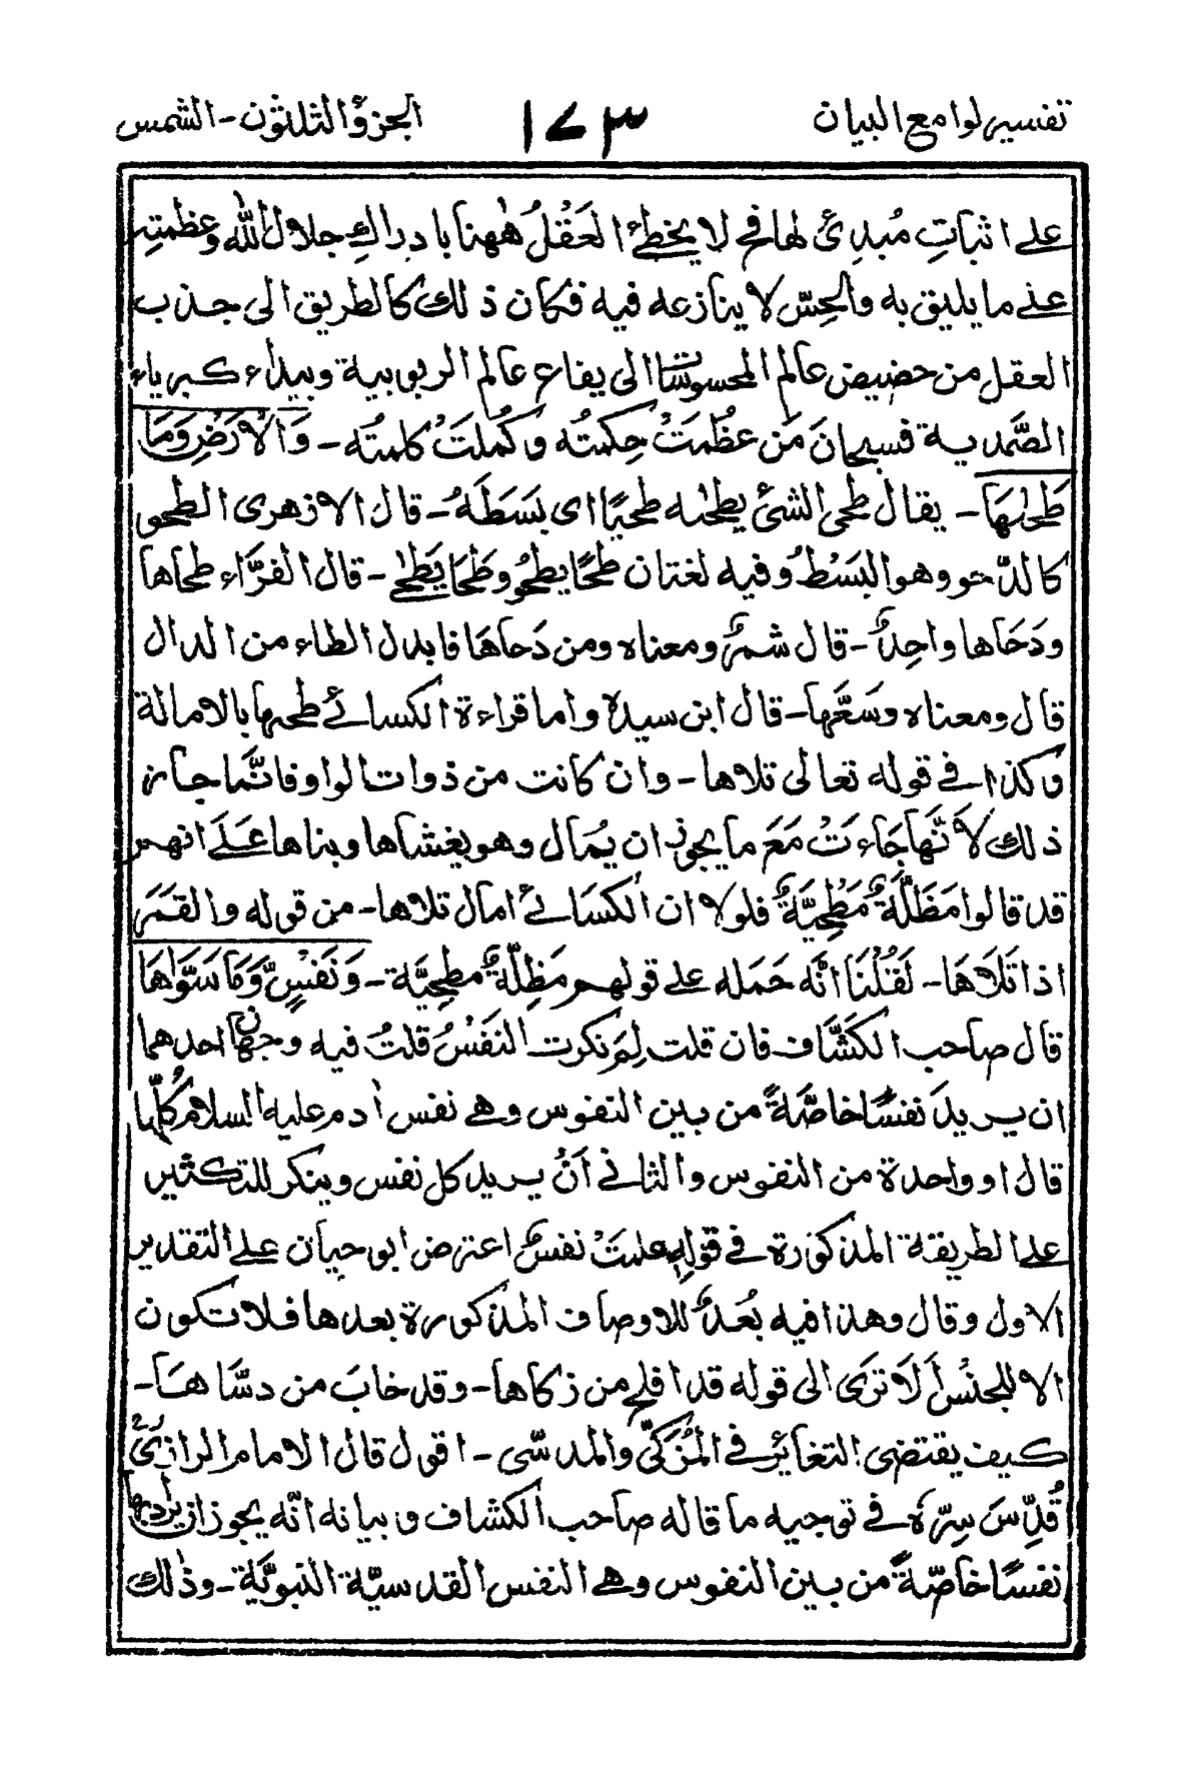 تفسير لوامع البيان ١٧٣ الجزؤ الثلثون - الشمس
على اثباتِ مُبدِئ لها فح لا يخطئ العَقْلُ هٰهنا بادراكِ جلال الله وعظمتِه
على ما يليق به والحِسّ لا ينازعه فيه فكان ذلك كالطريق الى جذب
العقل من حضيض عالم المحسوسات الى يفاع عالم الربوبية وبيداء كبرياء
الصَّمدية فسبحانَ مَن عظُمَتْ حِكمتُه وكمُلتَْ كلمتُه - وَالْاَرْضِ وَمَا
طَحٰىهَا - يقال طحى الشئ يطحٰىه طحيًا اى بَسَطَهُ - قال الازهرى الطحو
كالدَّحو وهو البَسْطُ وفيه لغتان طحَا يطحُو وطَحَا يَطحٰى - قال الفرَّاء طحاها
ودَحَاها واحِدٌ - قال شمرٌ ومعناه ومن دَحاهَا فابدل الطاء من الدال
قال ومعناه وسَعَّها - قال ابن سيدة واما قراءة الكسائى طحيها بالامالة
وكذا فى قوله تعالى تلاها - وان كانت من ذوات الواو فانَّما جاز
ذلك لاَنَّها جَاءَتْ مَعَ ما يجوز ان يُمال وهو يغشاها وبناها عَلَى انهم
قد قالوا مَظَلَّةٌ مَطْحِيَّةٌ فلولا ان الكسَائى امال تلاها - من قوله والقَمَر
اذا تَلَاهَا - لَقُلْنَا انَّه حَمَله على قولهم مَظِلّةٌ مطحِيَّة - وَنَفْسٍ وَّمَا سَوَّاهَا
قال صاحب الكَشَّاف فان قلت لِمَ نكرت النَفْسُ قلتُ فيه وجهان احدهما
ان يريدَ نفسًا خاصَّةً من بين النفوس وهى نفس اٰدم عليه السلام كُلَّما
قال او واحدة من النفوس والثانى اَنْ يريد كل نفس وينكر للتكثير
على الطريقة المذكورة فى قولِه علمتْ نفسٌ اعترض ابو حيان على التقدير
الاول وقال وهذا فيه بُعدٌ للاوصاف المذكورة بعدها فلا تكون
الا للجنْس اَلَا تَرَى الى قوله قد افلح من زكاها - وقد خابَ من دسَّاها -
كيف يقتضى التغائر فى المُزكّى والمدسّى - اقول قال الامام الرازىؒ
قُدِّسَ سِرّهٗ فى توجيه ما قاله صاحب الكشاف وبيانه انّه يجوز ان يراد بها
نفسًا خاصّةً من بين النفوس وهى النفس القدسيّة النبويَّة - وذٰلك